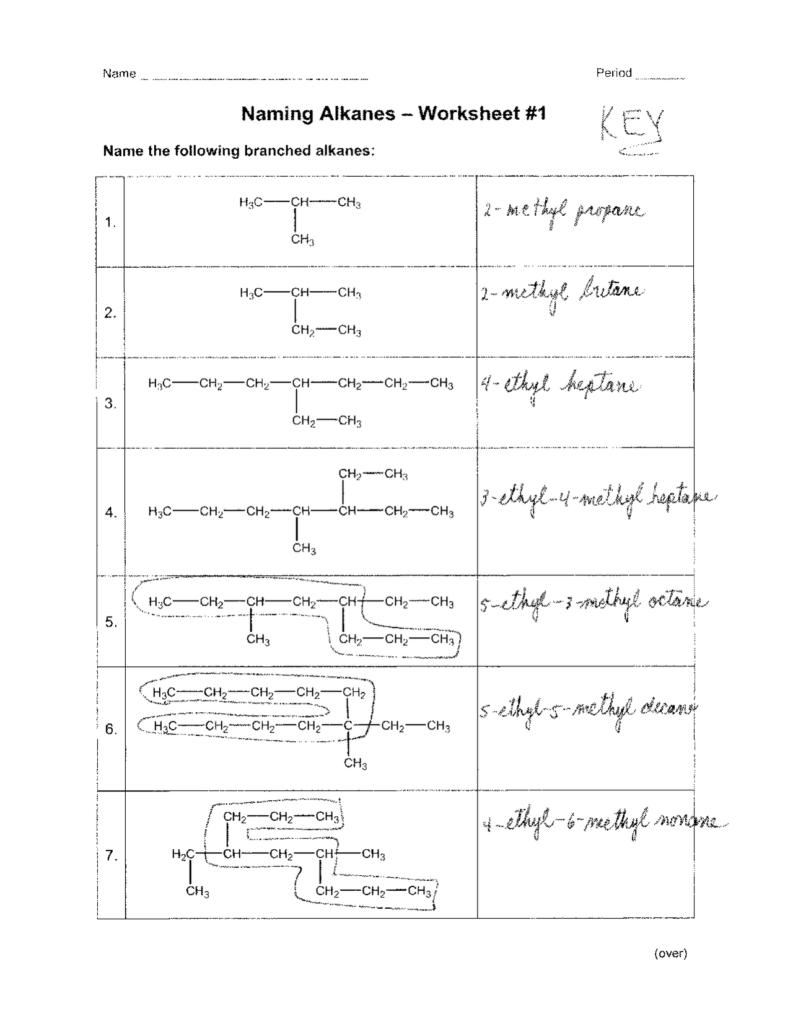 Name
Period
Naming Alkanes – Worksheet #1
KEY
Name the following branched alkanes:
1.
H₃C—CH—CH₃
CH₃
2-methyl propane
2.
H₃C—CH—CH₃
CH₂—CH₃
2-methyl butane
3.
H₃C—CH₂—CH₂—CH—CH₂—CH₂—CH₃
CH₂—CH₃
4-ethyl heptane
4.
CH₂—CH₃
H₃C—CH₂—CH₂—CH—CH—CH₂—CH₃
CH₃
3-ethyl-4-methyl heptane
5.
H₃C—CH₂—CH—CH₂—CH—CH₂—CH₃
CH₃
CH₂—CH₂—CH₃
5-ethyl-3-methyl octane
6.
H₃C—CH₂—CH₂—CH₂—CH₂
H₃C—CH₂—CH₂—CH₂—C—CH₂—CH₃
CH₃
5-ethyl-5-methyl decane
7.
CH₂—CH₂—CH₃
H₂C—CH—CH₂—CH—CH₃
CH₃
CH₂—CH₂—CH₃
4-ethyl-6-methyl nonane
(over)